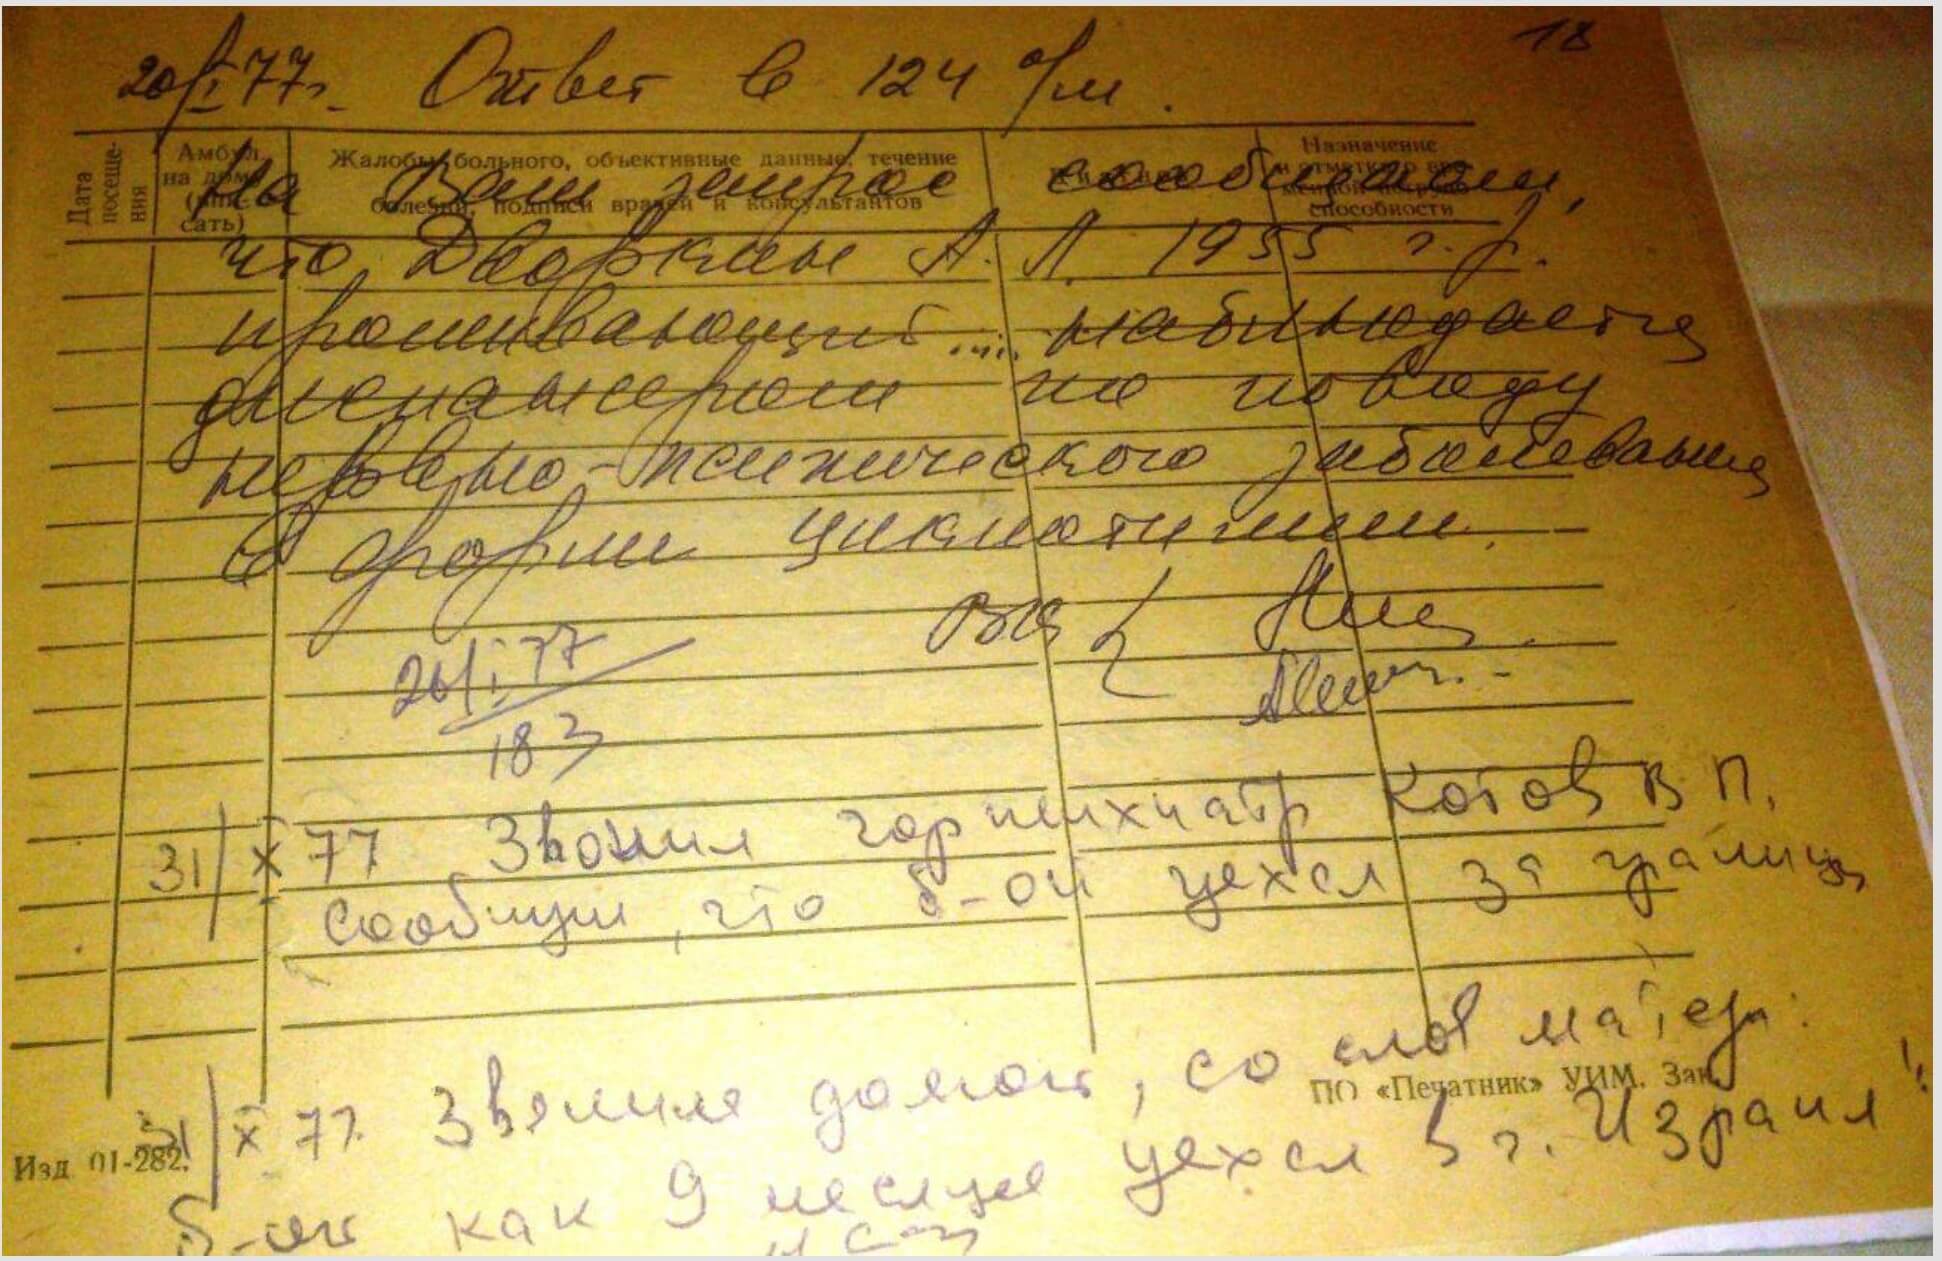 18
20/I 77г. Ответ в 124 о/м.
Дата посеще- ния
Амбул. на дому (впи- сать)
Жалобы больного, объективные данные, течение
болезни, подписи врачей и консультантов
Назначение
и отметка о вре-
менной нетрудо-
способности
На Ваш запрос сообщаем,
что Дворкин А. Л. 1955 г.р.
проживающий ... наблюдается
диспансером по поводу
нервно-психического заболевания
в форме циклотимии.
20/I 77
183
31/X 77 Звонил горпсихиатр Котов В П,
сообщил, что б-ой уехал за границу
31/X 77. Звонила домой, со слов матери
б-ой как 9 месяцев уехал в г. Израил!
ПО «Печатник» УИМ. Зак.
Изд 01-282.